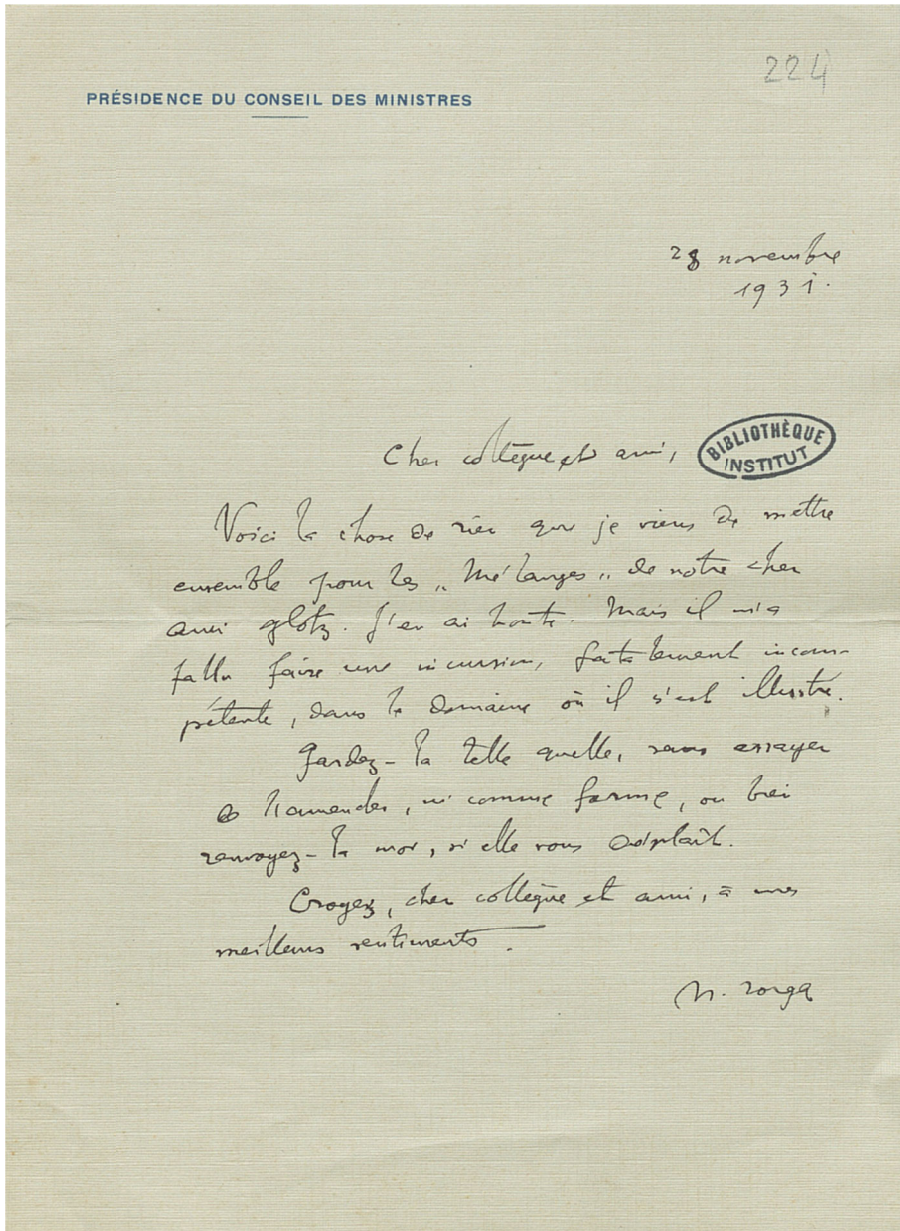 224
PRÉSIDENCE DU CONSEIL DES MINISTRES
28 novembre
1931.
Cher collègue et ami,
BIBLIOTHÈQUE
INSTITUT
Voici la chose de rien que je viens de mettre
ensemble pour les „Mélanges„ de notre cher
ami Glotz. J'en ai honte. Mais il m'a
fallu faire une incursion, fatalement incom-
pétente, dans le domaine où il s'est illustré.
Gardez-la telle quelle, sans essayer
de l'amender, ni comme forme, ou bien
renvoyez-la moi, si elle vous déplaît.
Croyez, cher collègue et ami, à mes
meilleurs sentiments.
N. Iorga